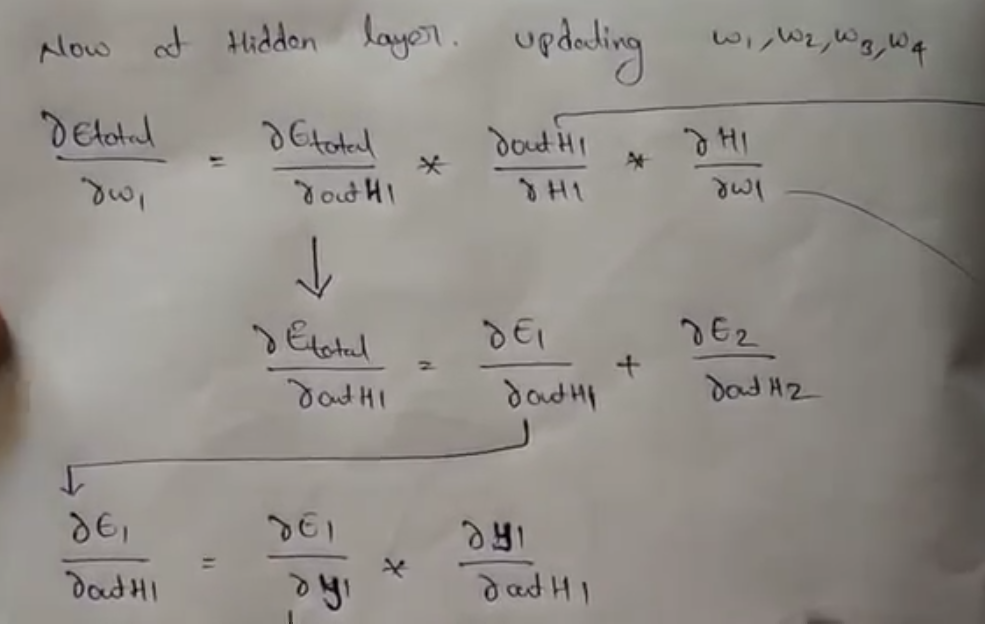 Now at Hidden layer. updating w₁, w₂, w₃, w₄
∂Etotal/∂w₁ = ∂Etotal/∂outH1 * ∂outH1/∂H1 * ∂H1/∂w1
∂Etotal/∂outH1 = ∂E1/∂outH1 + ∂E2/∂outH2
∂E1/∂outH1 = ∂E1/∂y1 * ∂y1/∂outH1